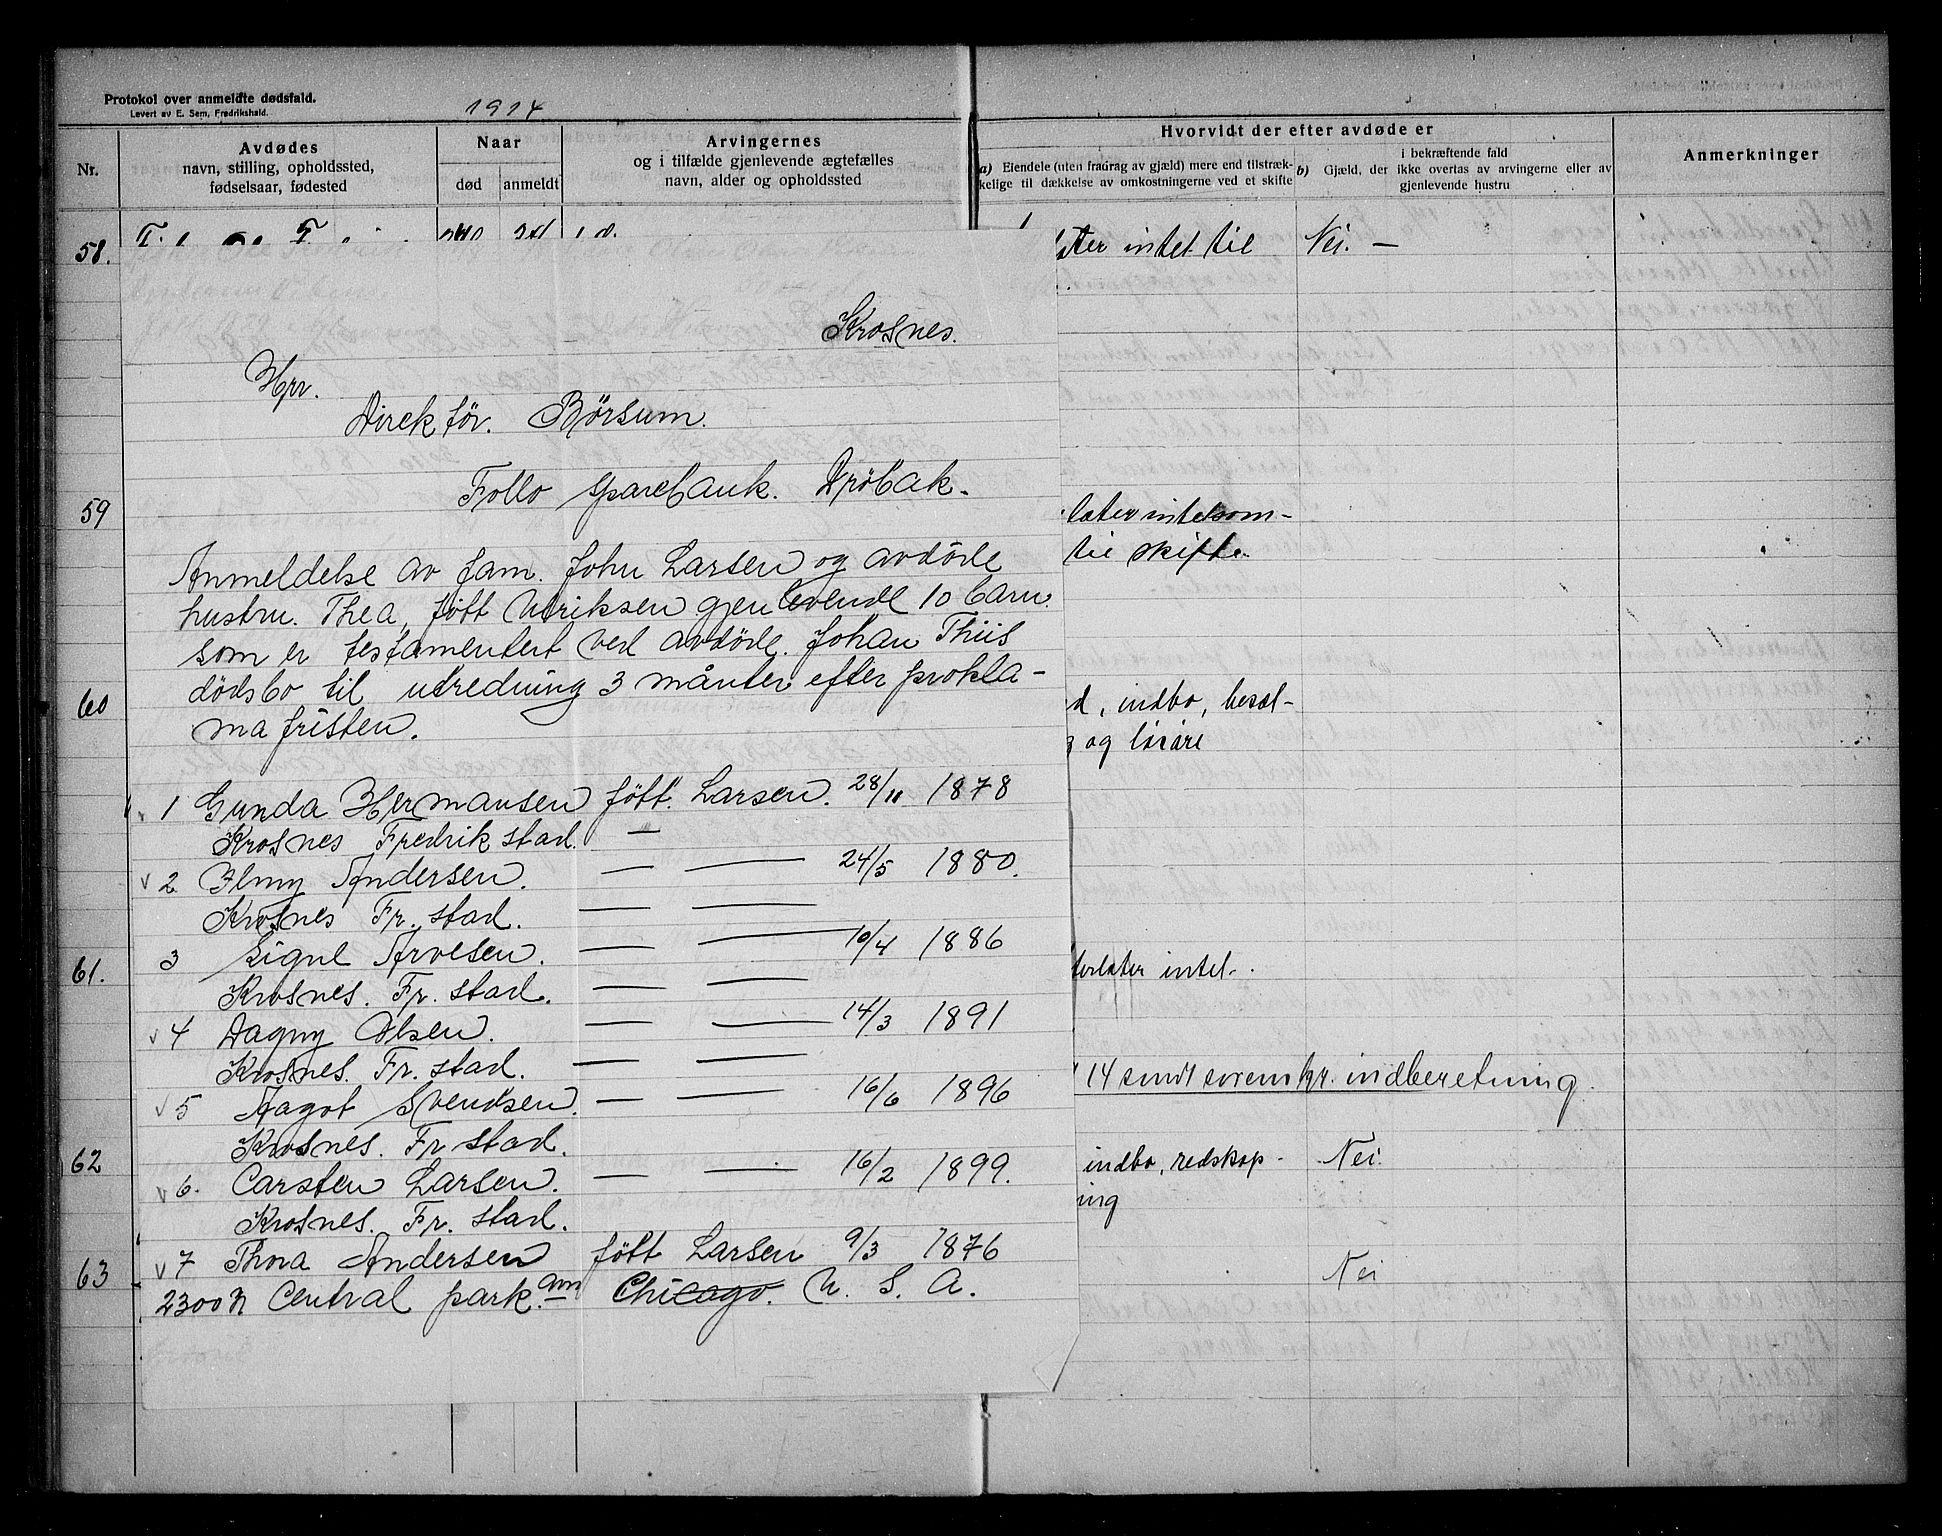 Protokol over anmeldte dødsfald.
Levert av E. Sem, Fredrikshald.
1914
Nr.
Avdødes
navn, stilling, opholdssted,
fødselsaar, fødested
Naar
død
anmeldt
Arvingernes
og i tilfælde gjenlevende ægtefælles
navn, alder og opholdssted
Hvorvidt der efter avdøde er
a) Eiendele (uten fradrag av gjæld) mere end tilstræk-
kelige til dækkelse av omkostningerne ved et skifte
b) Gjæld, der i bekræftende fald
ikke overtas av arvingerne eller av
gjenlevende hustru
Anmerkninger
58.
ter intet til
Nei. —
Krosnes.
Hr.
Direktör. Börsum.
Follo Sparebank. Dröbak.
59
later intet som
til skifte.
Anmeldelse av fam. John Larsen og avdöde
hustru. Thea, fött Ulriksen gjenlevende 10 barn.
som er testamentert ved avdöde. Johan Thiis
dödsbo til utredning 3 månter efter prokla-
ma fristen.
60
d, indbo, besæt-
g og løsøre
v 1 Gunda Hermansen fött. Larsen. 28/11 1878
Krosnes Fredrikstad. —
v 2 Elmy Andersen. — — 24/5 1880.
Krosnes Fr. stad. — —
3 Signe Arvesen. — — 10/4 1886
Krosnes. Fr. stad. — —
61.
terlater intet.
v 4 Dagny Olsen. — — 14/3 1891
Krosnes. Fr. stad. — —
14 sendt sorenskr. indberetning.
v 5 Aagot Svendsen. — — 16/6 1896
Krosnes. Fr. stad.
62
indbo, redskap -
ning
Nei.
v 6. Carsten Larsen. — — 16/2 1899.
Krosnes. Fr. stad.
63
Nei
v 7 Thora Andersen fött Larsen 9/3 1876
2300 N Central park. am Chicago. U. S. A.